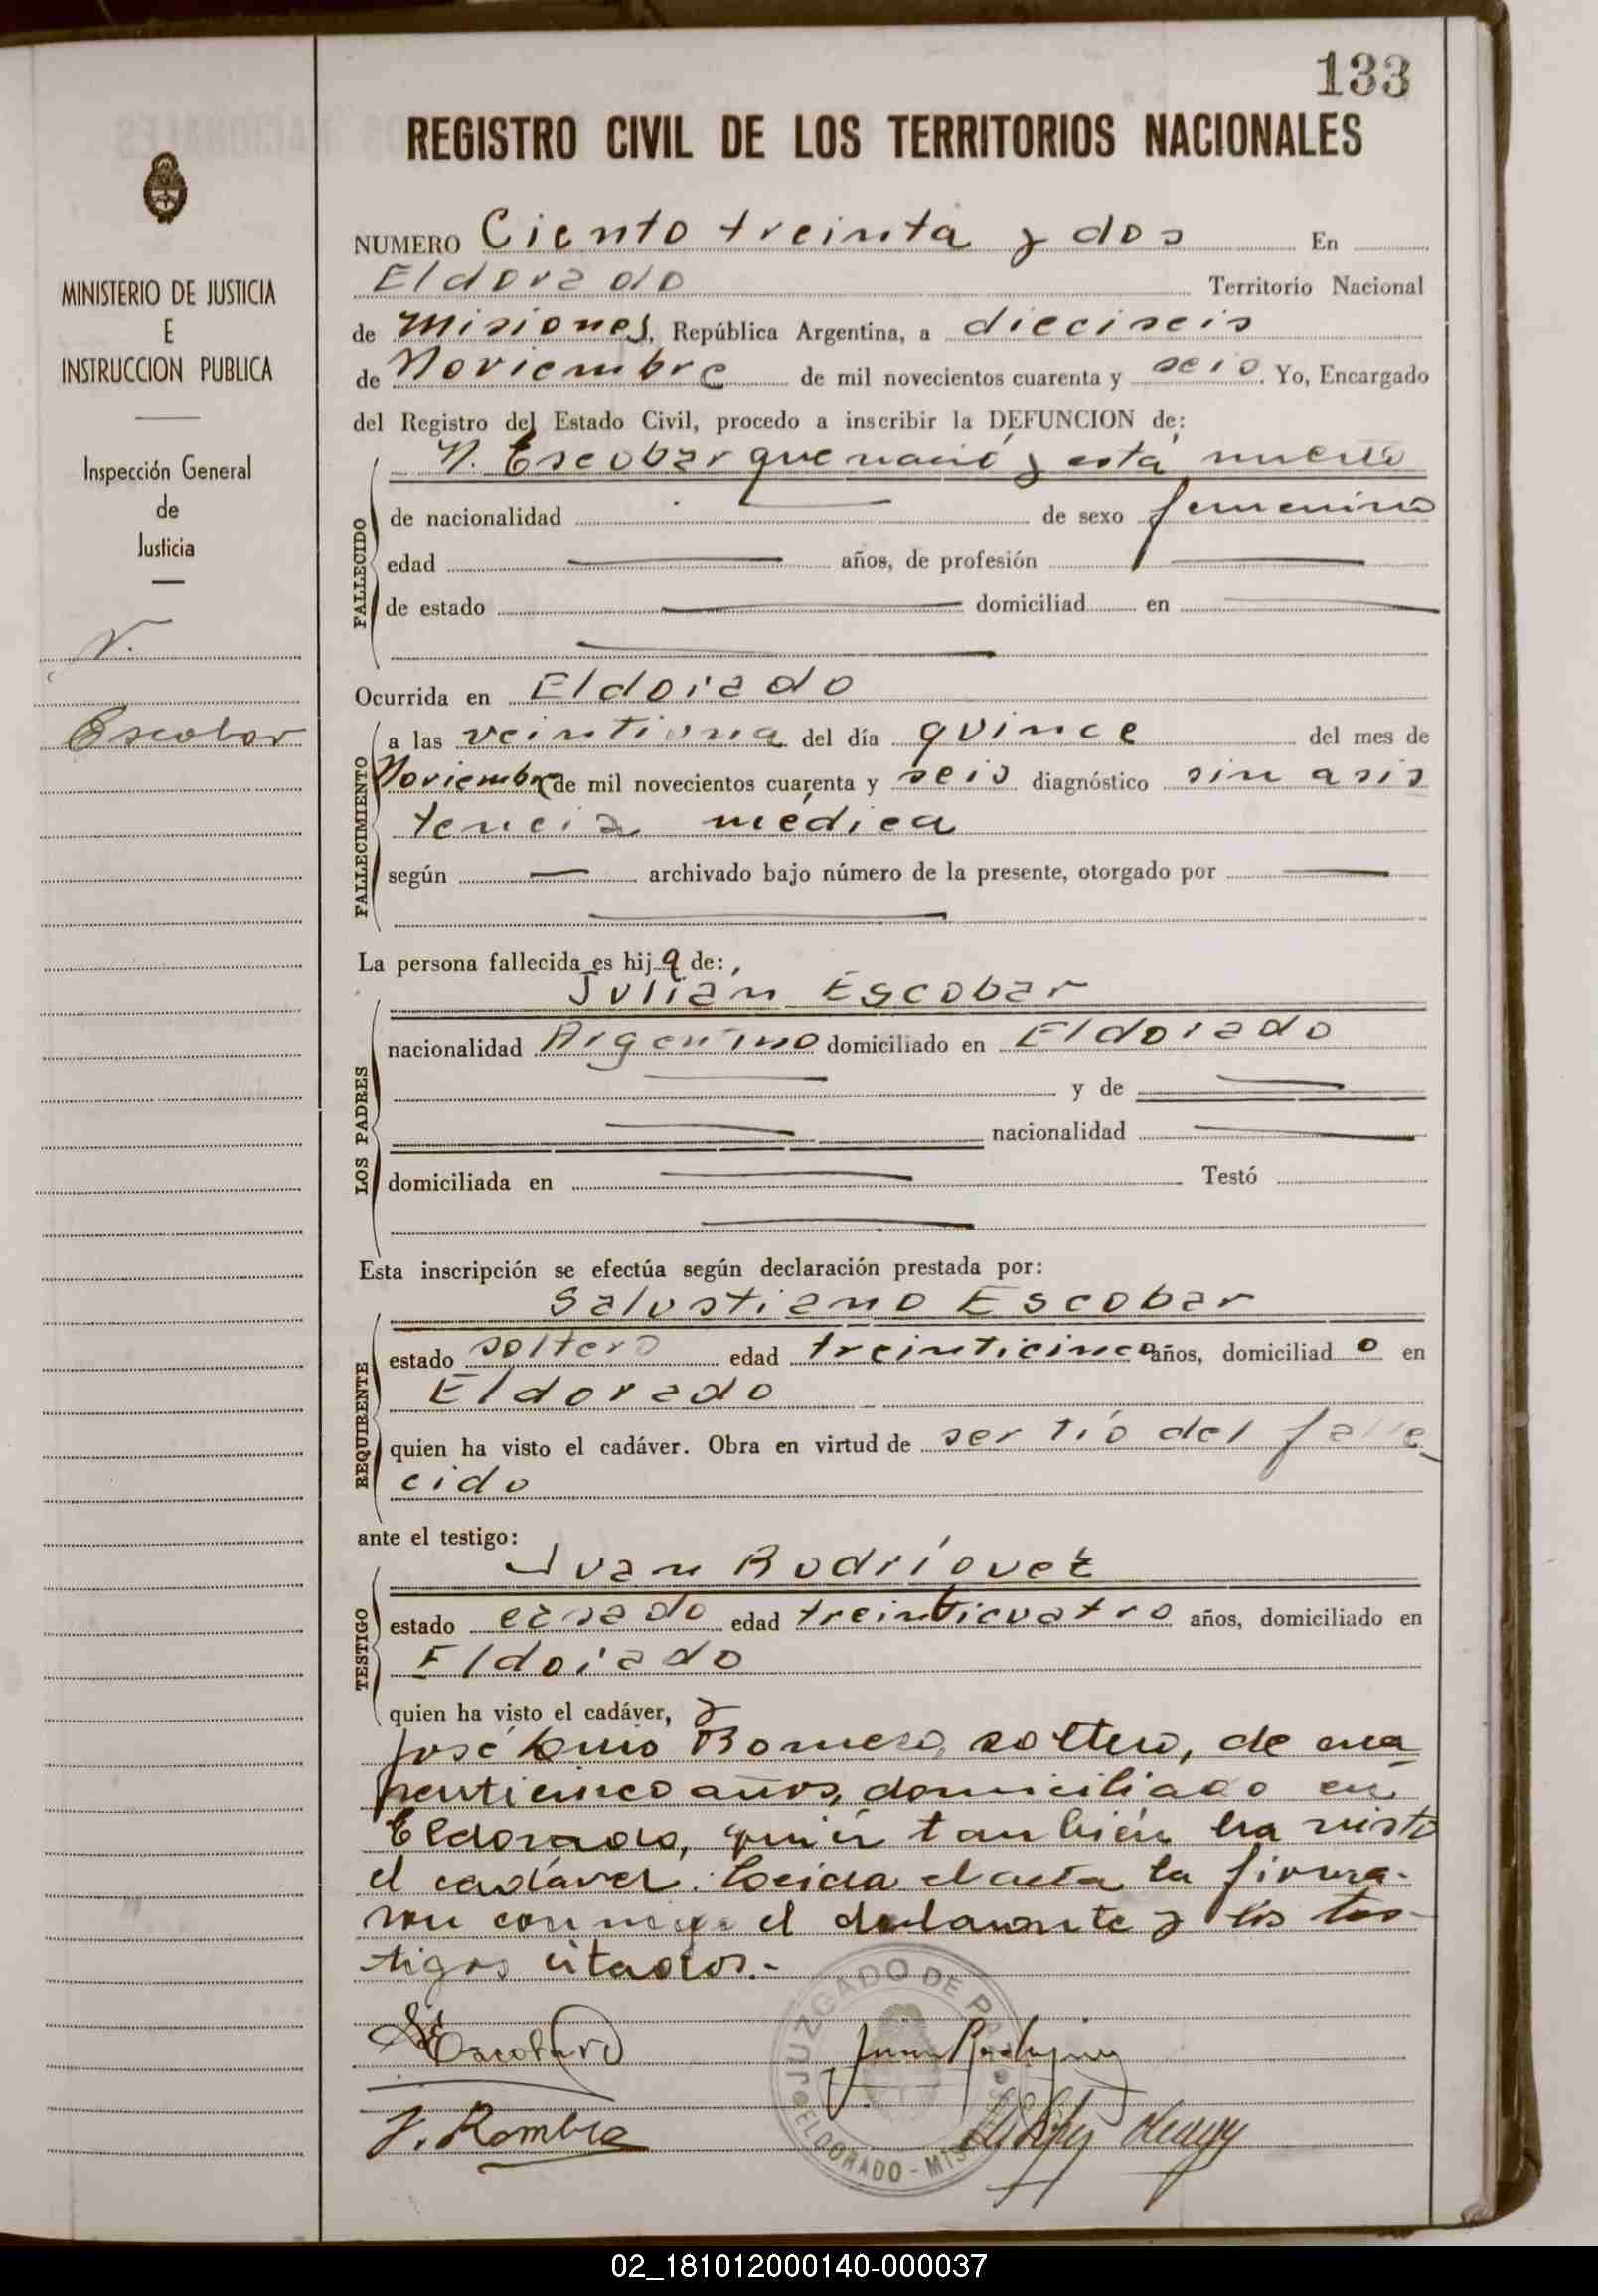 133
REGISTRO CIVIL DE LOS TERRITORIOS NACIONALES
MINISTERIO DE JUSTICIA
E
INSTRUCCION PUBLICA
Inspección General
de
Justicia
N.
Escobar
NUMERO Ciento treinta y dos En
Eldorado Territorio Nacional
de Misiones, República Argentina, a dieciseis
de Noviembre de mil novecientos cuarenta y seis. Yo, Encargado
del Registro del Estado Civil, procedo a inscribir la DEFUNCION de:
N. Escobar que nació y está muerta
FALLECIDO
de nacionalidad de sexo femenino
edad años, de profesión
de estado domiciliad en
Ocurrida en Eldorado
FALLECIMIENTO
a las veintiuna del día quince del mes de
Noviembre de mil novecientos cuarenta y seis diagnóstico sin asis
tencia médica
según archivado bajo número de la presente, otorgado por
La persona fallecida es hija de:
Julian Escobar
LOS PADRES
nacionalidad Argentino domiciliado en Eldorado
y de
nacionalidad
domiciliada en Testó
Esta inscripción se efectúa según declaración prestada por:
Salustiano Escobar
REQUIRENTE
estado soltero edad treinticinco años, domiciliado en
Eldorado
quien ha visto el cadáver. Obra en virtud de ser tío del falle
cido
ante el testigo:
Juan Rodríguez
TESTIGO
estado casado edad treinticuatro años, domiciliado en
Eldorado
quien ha visto el cadáver, y
José Luis soltero, de
años, domiciliado en
Eldorado, quien también ha visto
el cadáver. Leida el acta la firma-
ron conmigo el declarante y los tes-
tigos citados.-
S. Escobar
Juan Rodriguez
JUZGADO DE PAZ
ELDORADO - MISIONES
02_181012000140-000037